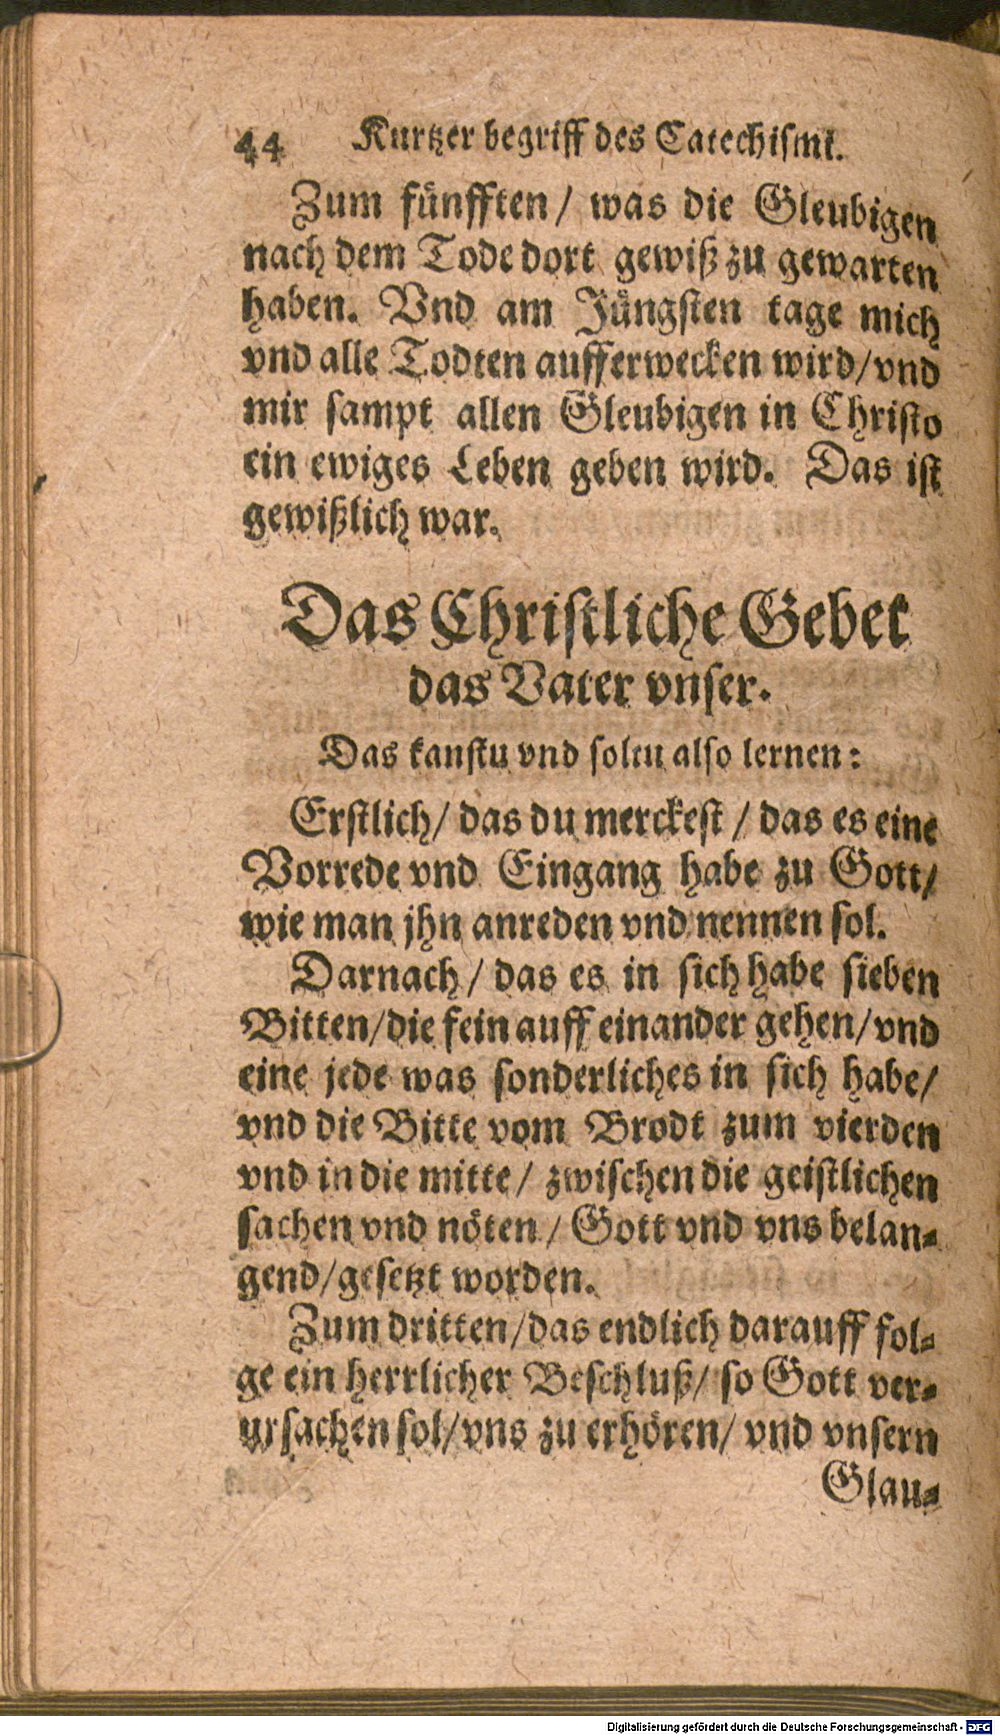 44 Kurtzer begriff des Catechismi.
Zum fünfften/ was die Gleubigen
nach dem Tode dort gewiß zu gewarten
haben. Vnd am Jüngsten tage mich
vnd alle Todten aufferwecken wird/vnd
mir sampt allen Gleubigen in Christo
ein ewiges Leben geben wird. Das ist
gewißlich war.
Das Christliche Gebet
das Vater vnser.
Das kanstu vnd soltu also lernen:
Erstlich/ das du merckest / das es eine
Vorrede vnd Eingang habe zu Gott/
wie man jhn anreden vnd nennen sol.
Darnach/ das es in sich habe sieben
Bitten/die fein auff einander gehen/vnd
eine jede was sonderliches in sich habe/
vnd die Bitte vom Brodt zum vierden
vnd in die mitte/ zwischen die geistlichen
sachen vnd nöten/ Gott vnd vns belan-
gend/gesetzt worden.
Zum dritten/das endlich darauff fol-
ge ein herrlicher Beschluß/ so Gott ver-
ursachen sol/vns zu erhören/ vnd vnsern
Glau-
Digitalisierung gefördert durch die Deutsche Forschungsgemeinschaft - DFG